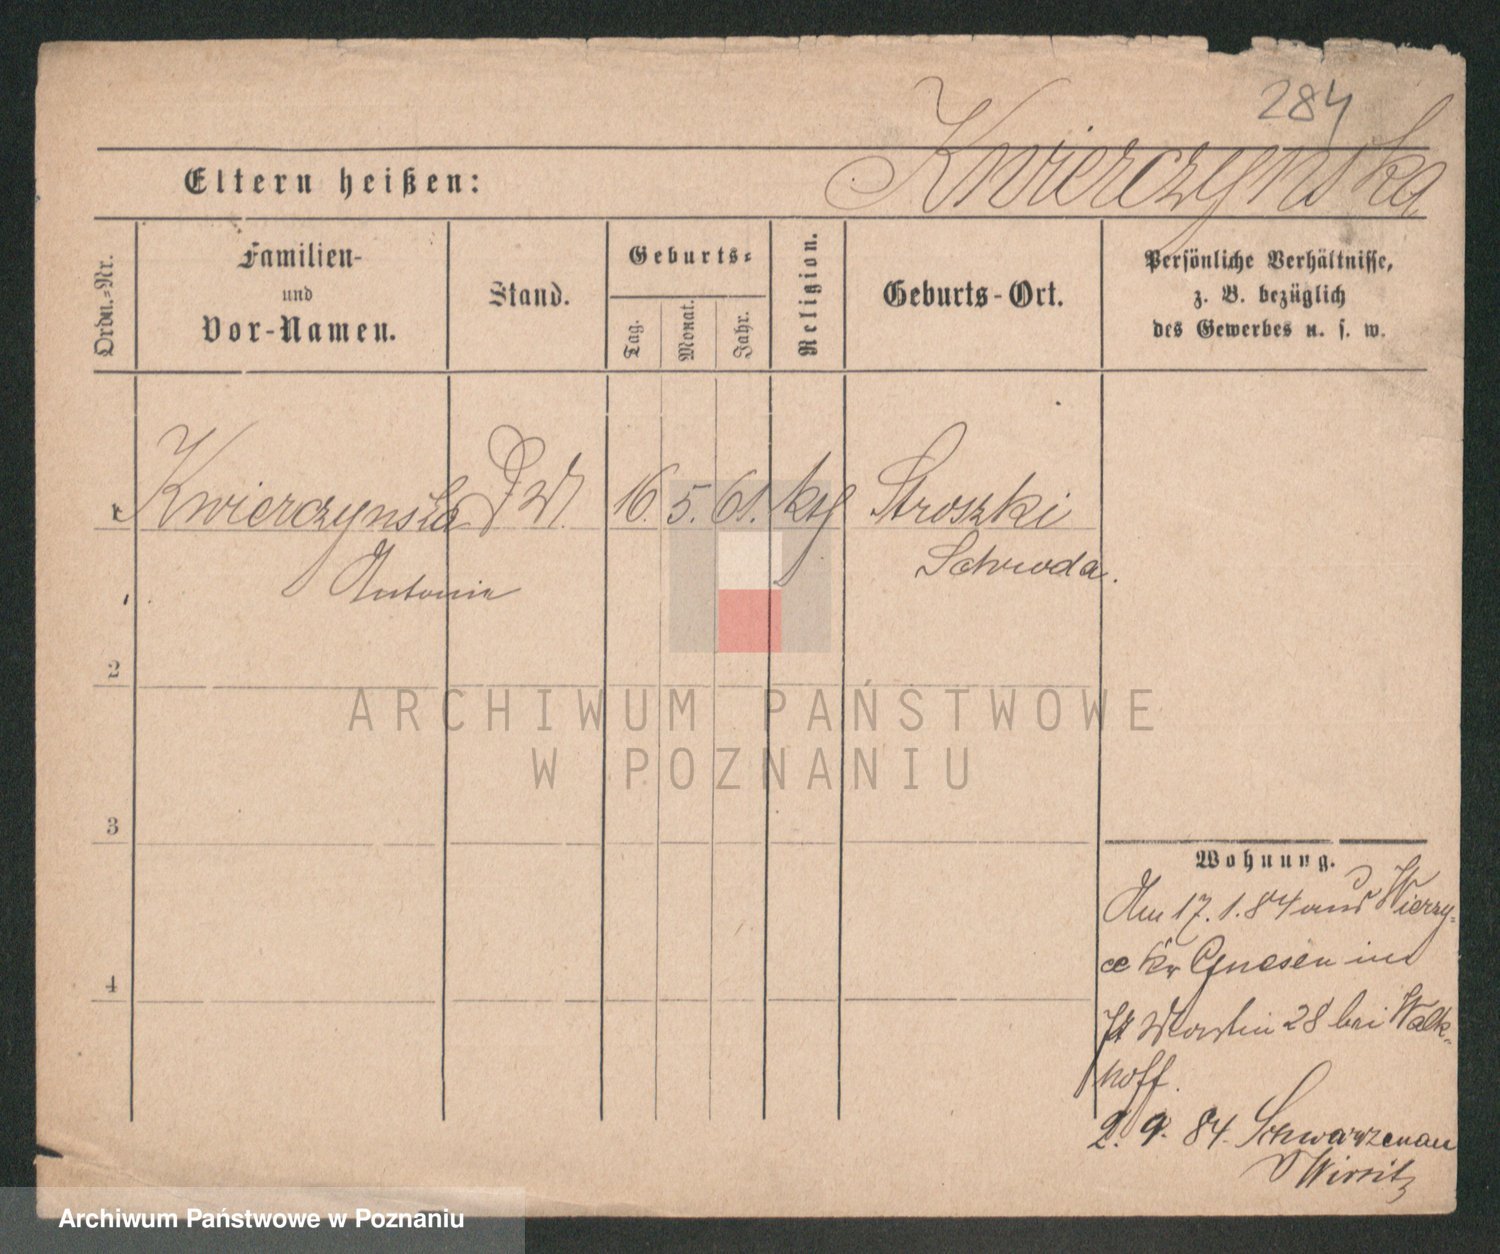 284
Kwierczynska
Eltern heißen:
Ordn.=Nr.
Familien-
und
Vor-Namen.
Stand.
Geburts=
Tag.
Monat.
Jahr.
Religion.
Geburts-Ort.
Persönliche Verhältnisse,
z. B. bezüglich
des Gewerbes u. s. w.
1 Kwierczynska 16. 5. 61. kth Stroszki
Antonie Schroda.
2
3
4
Wohnung.
Am 17. 1. 84 aus Wierzy=
ce Kr Gnesen in
St Martin 28 bei Walk=
hoff.
2. 9. 84. Schwarzenau
Wirsitz
ARCHIWUM PAŃSTWOWE
W POZNANIU
Archiwum Państwowe w Poznaniu